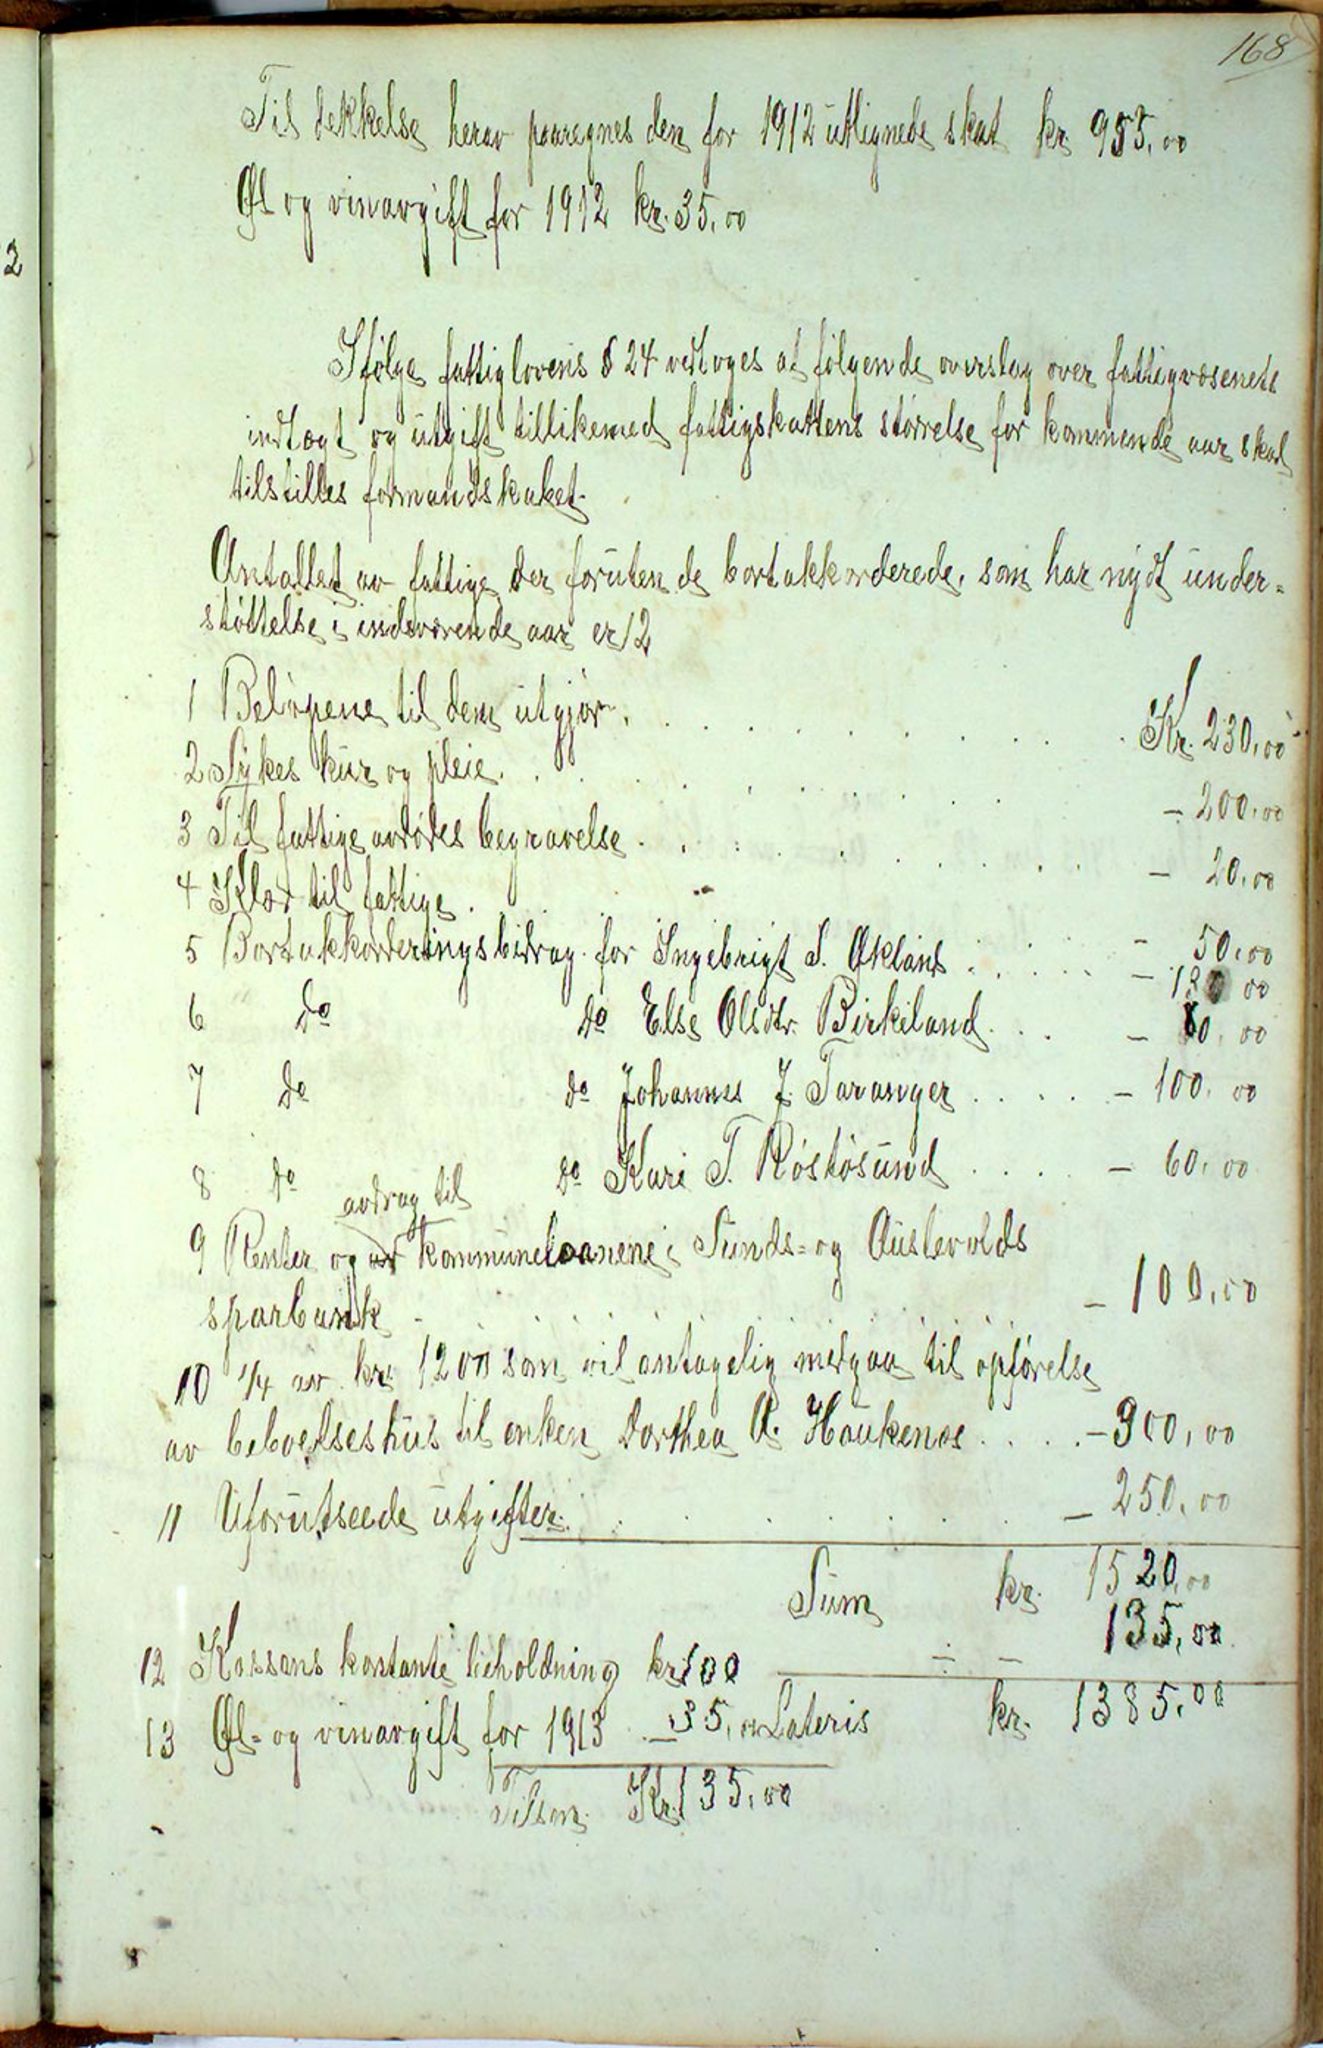 168
Til dekkelse herav paaregnes den for 1912 utlignede skat kr. 955,00
Øl og vinavgift for 1912 kr. 35,00
2
Ifølge fattiglovens § 24 vedtoges at følgende overslag over fattigvæsenets
indtægt og utgift tillikemed fattigskattens størrelse for kommende aar skal
tilstilles formandskabet.
Antallet av fattige der foruten de bortakkorderede, som har nydt under=
støttelse i indeværende aar er 12
1 Beløpene til dem utgjør. Kr. 230,00
2 Sykes kur og pleie. - 200,00
3 Til fattige avdødes begravelse - 20,00
4 Klær til fattige. - 50,00
5 Bortakkorderingsbidrag for Ingebrigt S. Økland - 130 00
6 do do Else Olsdtr. Birkeland. - 80,00
7 do do Johannes J. Taranger - 100,00
8 do do Kari T. Røstøsund - 60,00
avdrag til
9 Renter og av kommunelaanene i Sunds= og Austevolds
sparbank - 100,00
10 1/4 av kr. 1200 som vil antagelig medgaa til opførelse
av beboelseshus til enken Dorthea A. Haukenæs - 300,00
11 Uforutseede utgifter. - 250,00
Sum kr. 1520,00
12 Kassans kontante beholdning kr. 100 - - 135,00
13 Øl= og vinavgift for 1913 - 35,00 Lateris kr. 1385,00
Tilsm. Kr. 135,00